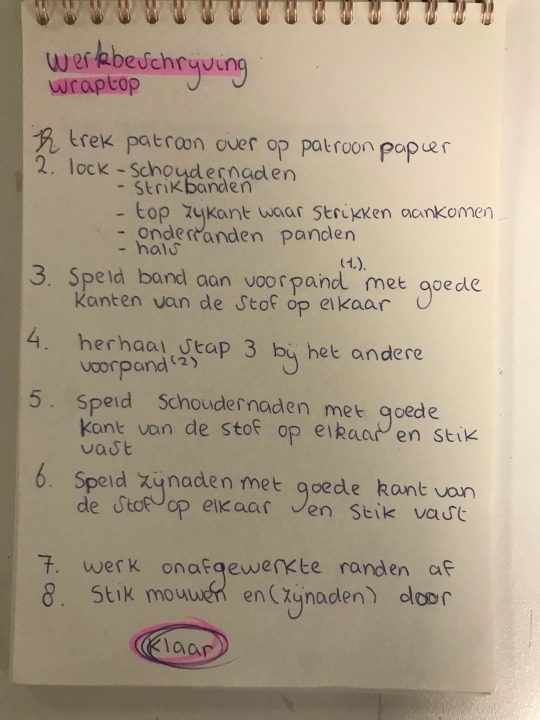 werkbeschrijving
wraptop
1. trek patroon over op patroonpapier
2. lock - schoudernaden
- strikbanden
- top zijkant waar strikken aankomen
- onderranden panden
- hals
3. Speld band aan voorpand (1.) met goede
kanten van de stof op elkaar
4. herhaal stap 3 bij het andere
voorpand (2)
5. Speld schoudernaden met goede
kant van de stof op elkaar en stik
vast
6. Speld zijnaden met goede kant van
de stof op elkaar en stik vast
7. werk onafgewerkte randen af
8. Stik mouwen en (zijnaden) door
Klaar